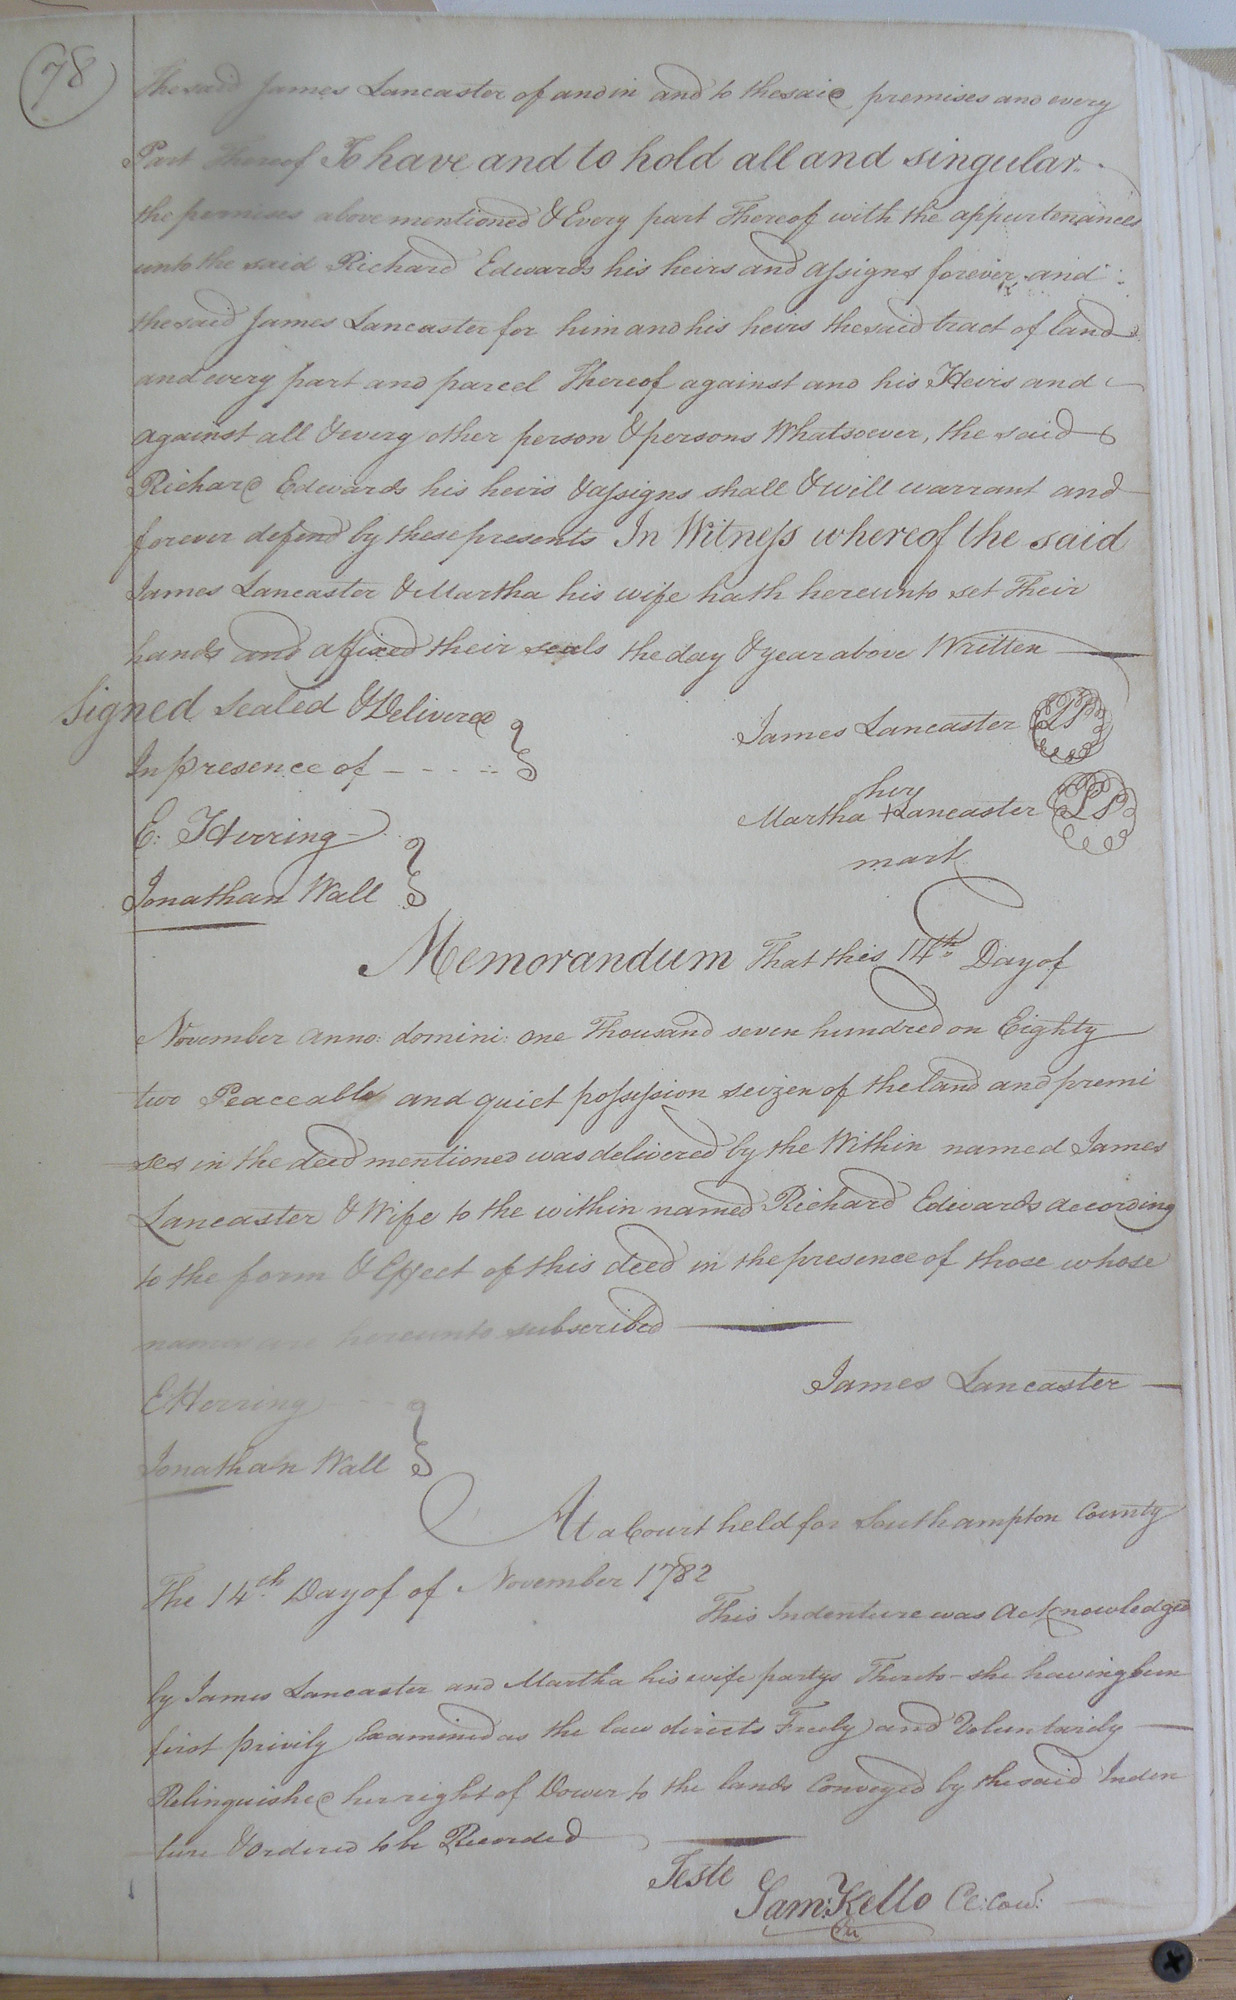 78
The said James Lancaster of and in and to the said premises and every
Part Thereof To have and to hold all and singular
the premises above mentioned & Every part Thereof with the appurtenances
unto the said Richard Edwards his heirs and assigns forever and
the said James Lancaster for him and his heirs the said tract of land
and every part and parcel Thereof against and his Heirs and
against all & every other person & persons Whatsoever, the said
Richard Edwards his heirs & assigns shall & will warrant and
forever defend by these presents In Witness whereof the said
James Lancaster & Martha his wife hath hereunto set Their
hands and affixed their seals the day & year above Written
Signed Sealed & Delivered
In presence of
James Lancaster LS
E: Herring
her
Martha + Lancaster LS
mark
Jonathan Wall
Memorandum That this 14th Day of
November anno: domini: one Thousand seven hundred on Eighty
two Peaceable and quiet possession seizen of the land and premi
ses in the deed mentioned was delivered by the Within named James
Lancaster & Wife to the within named Richard Edwards according
to the form & Effect of this deed in the presence of those whose
names are hereunto subscribed
James Lancaster
E Herring
Jonathan Wall
At a Court held for Southampton County
The 14th Day of of November 1782
This Indenture was Acknowledged
by James Lancaster and Martha his wife partys Thereto she having been
first privily Examined as the law directs Freely and Voluntarily
Relinquished her right of Dower to the lands Conveyed by the said Inden
ture & ordered to be Recorded
Teste
Sam: Kello Cl: Cou: